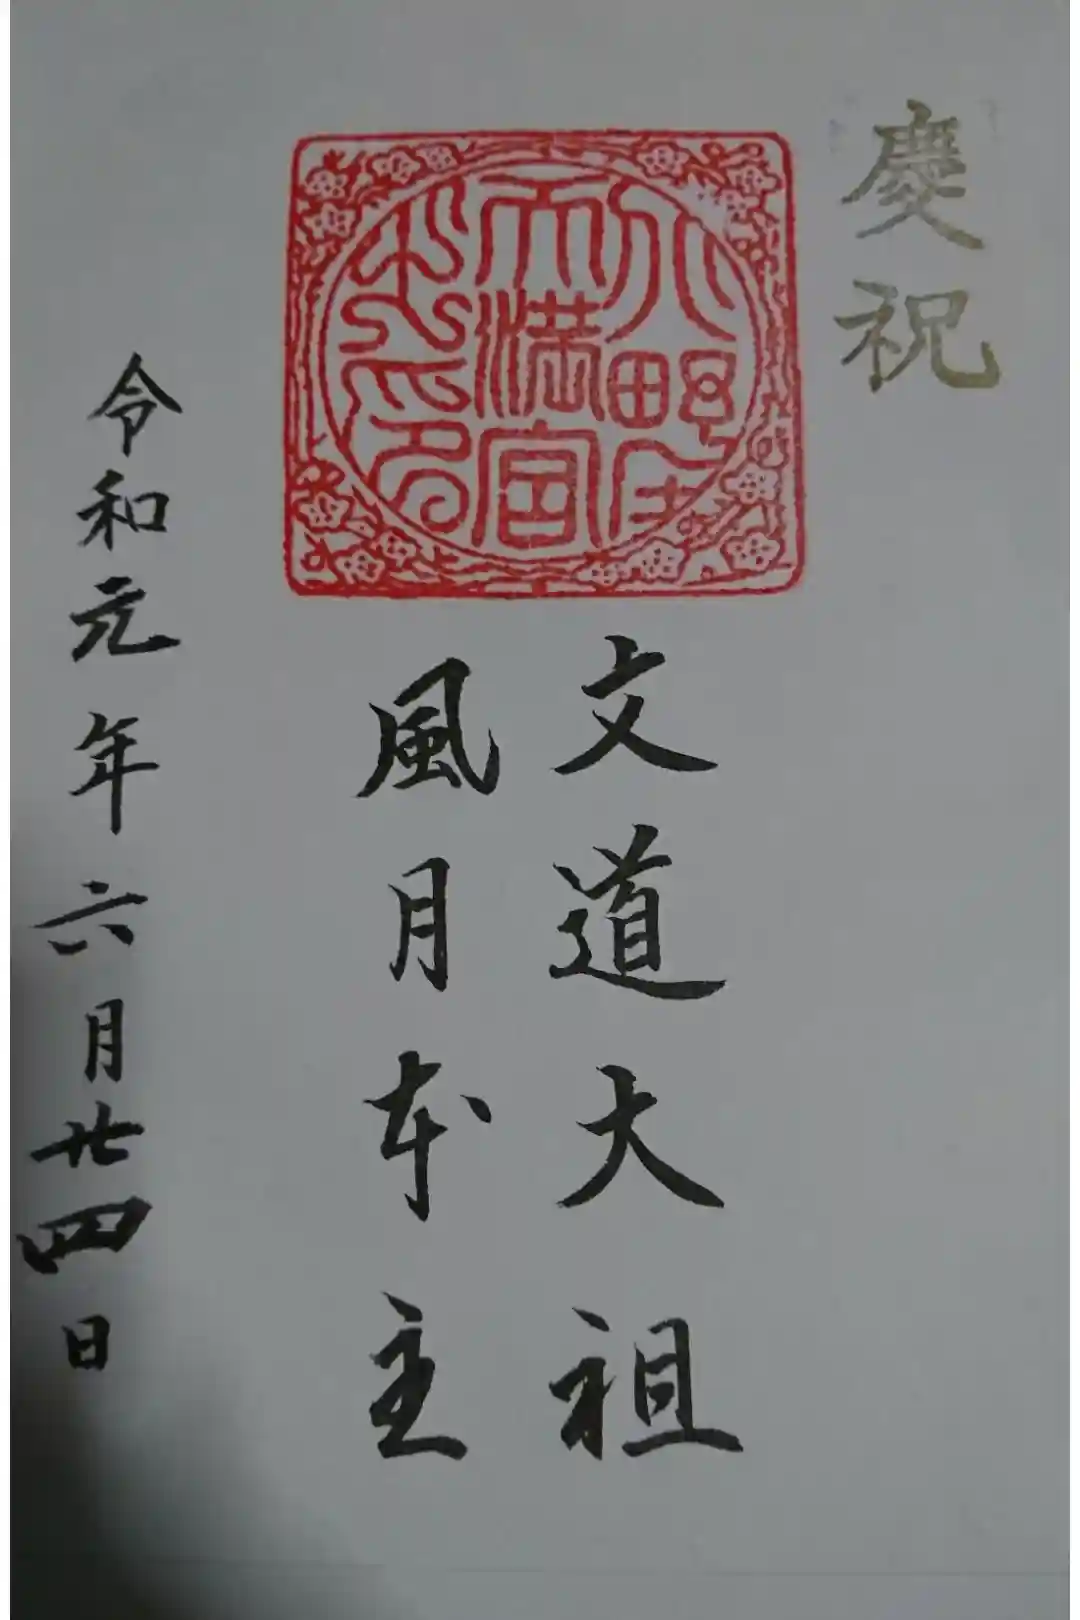 慶祝
天満宮
文道大祖
風月本主
令和元年六月廿四日